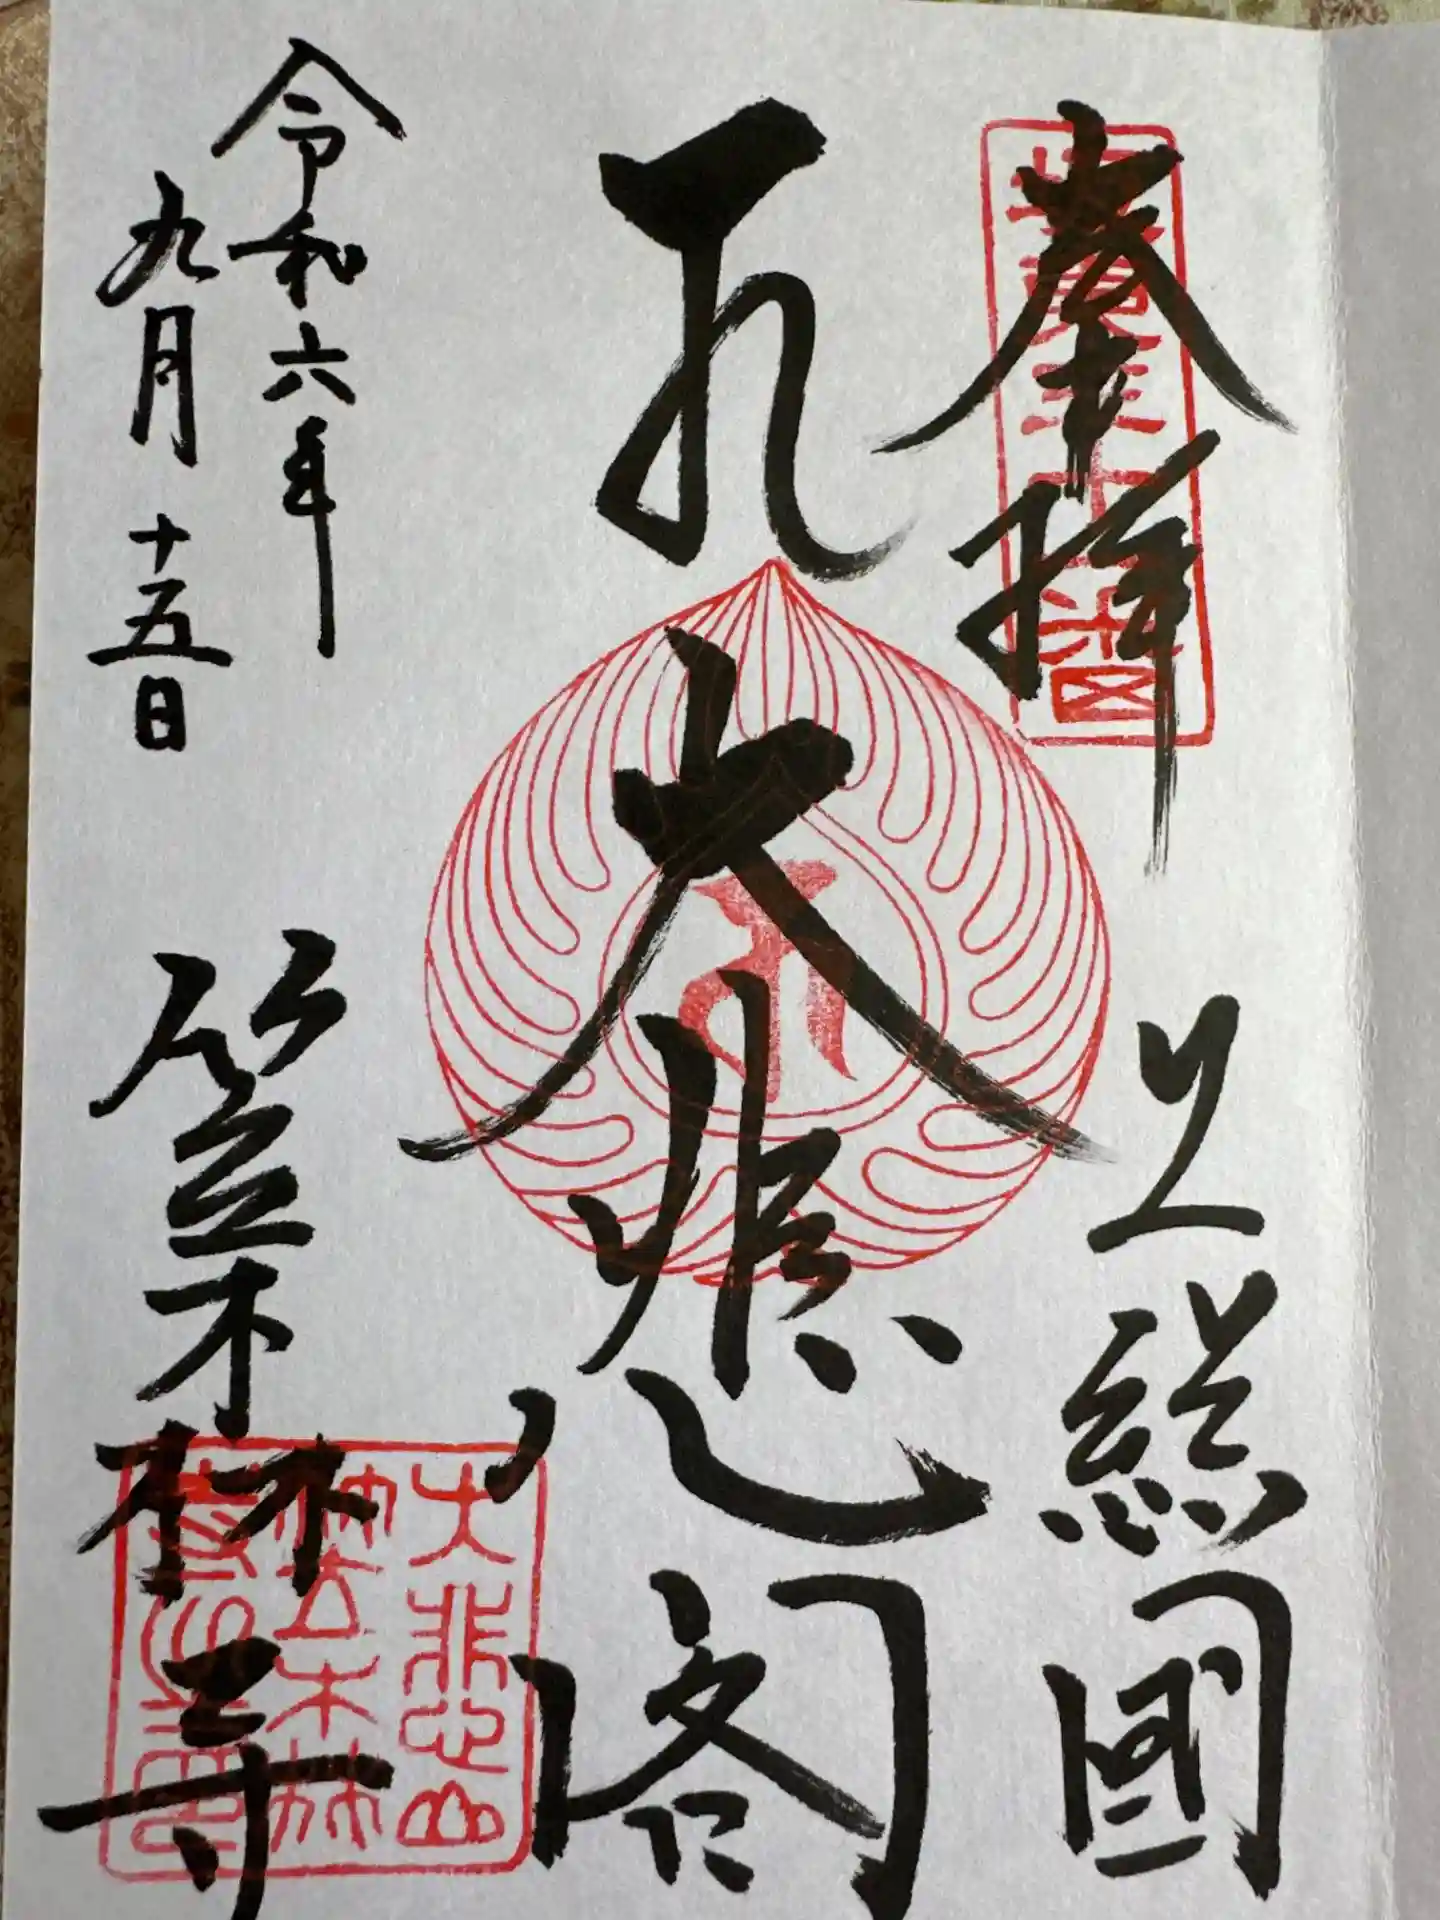 奉拝
坂東三十一番
上総國
大悲閣
大悲山
笠森
令和六年
九月十五日
笠森寺